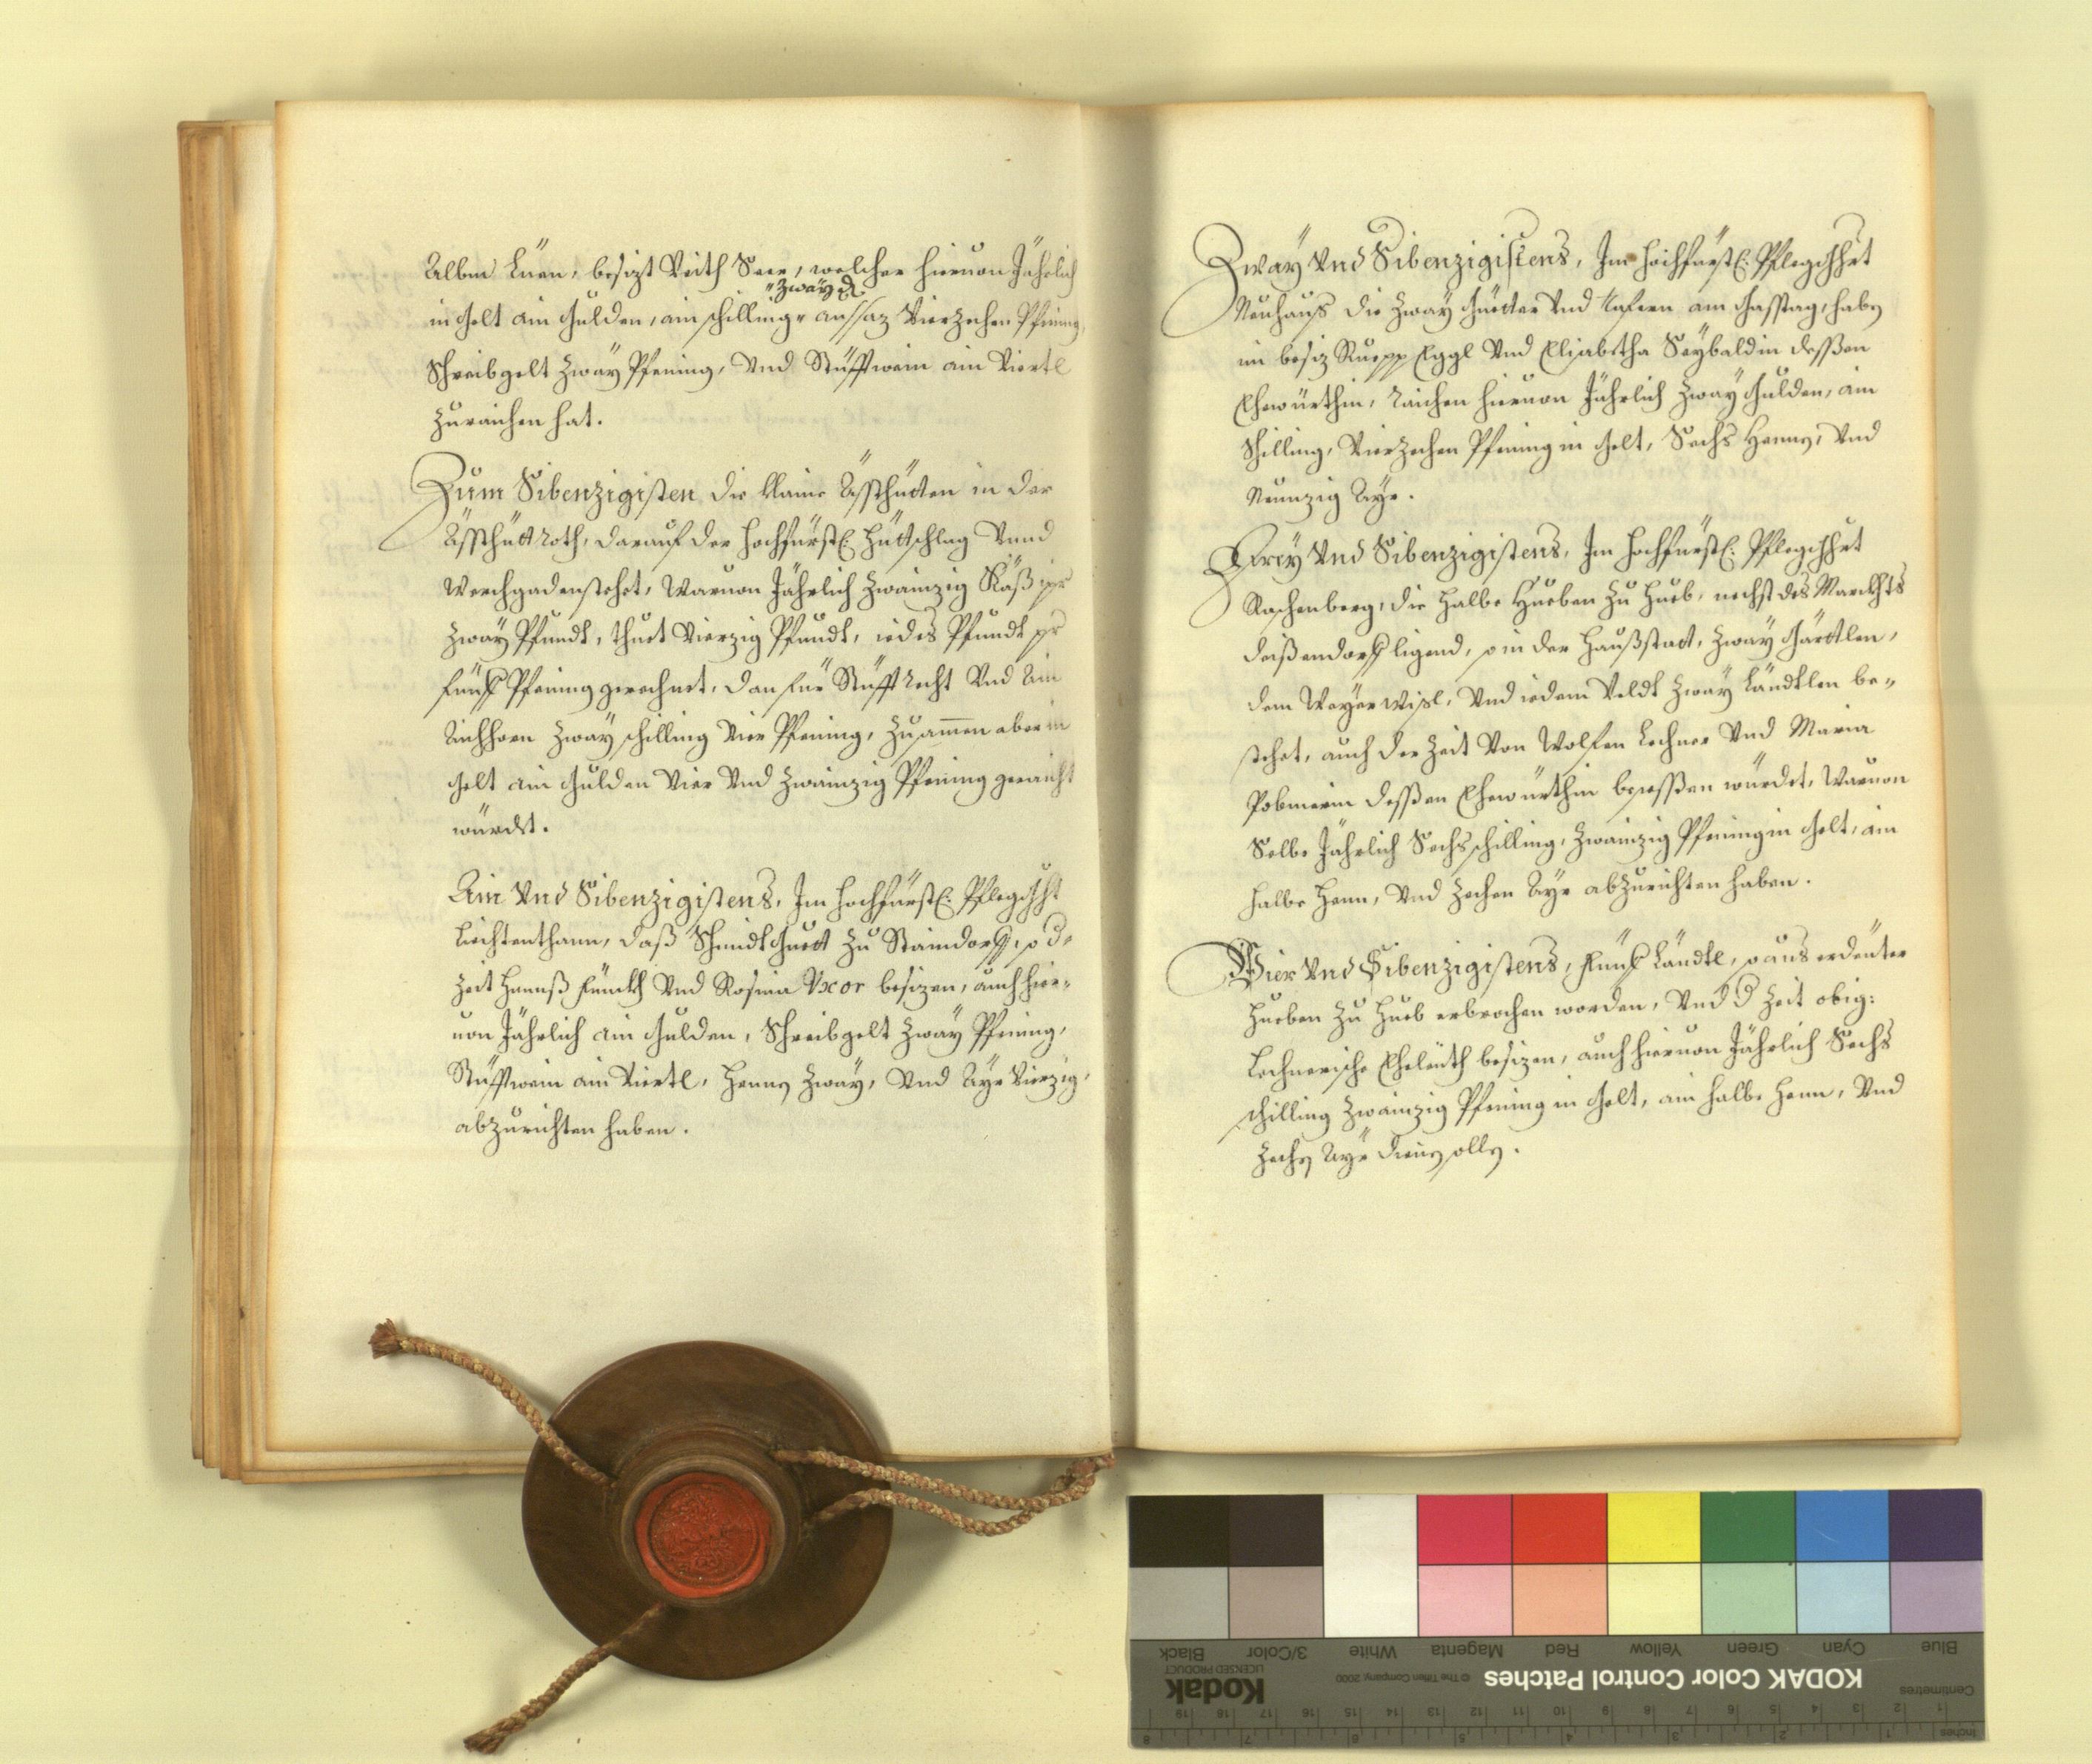 Alben Lüen, besizt Veith Seer, welcher hieruon Jährlich
"Zway d
in Gelt ain Gulden, ain schilling " ansaz Vierzechen Pfening,
Schreibgelt Zway Pfening, Vnd Stüfftwein ain Viertl
Zuraichen hat.
Zum Sibenzigisten die klaine Äschhütten in der
darauf der Hochfürstl: Hüttschlag Vnnd
Werchgaden stehet, Waruon Jährlich Zwainzig Käß
Zway Pfundt, thuet Vierzig Pfundt, iedes Pfundt pr
fünff Pfening gerechnet, dan für Stüfft Recht Vnd Ain
Zway schilling Vier Pfening, Zusammen aber in
Gelt ain Gulden Vier Vnd Zwainzig Pfening geraicht
würdet.
Ain Vnd Sibenzigistens, Im Hochfürstl: Pfleggricht
Liechtenthann, daß Schmidt Guett Zu Staindorff, so d.
Zeit Hannß Fünckh Vnd Rosina Vxor besizen, auch hier-
uon Jährlich ain Gulden, Schreibgelt Zway Pfening,
Stüfftwein ain Viertl, Hennen Zway, Vnd Ayr Vierzig,
abzurichten haben.
Zway Vnd Sibenzigistens, Im Hochfürstl: Pfleggricht
Neuhaus die Zway Güetter Vnd Tafern am Gasstag, haben
im besiz Ruepp Eggl Vnd Elisabetha Seybaldin dessen
Ehewürthin, Raichen hieruon Jährlich Zway Gulden, ain
Schilling, Vierzechen Pfening in Gelt, Sechs Hennen, Vnd
Neunzig Ayr.
Drey Vnd Sibenzigistens, Im Hochfürstl: Pfleggricht
Raschenberg, die Halbe Hueben Zu Hueb, nechst des Marckhts
Deißendorff ligend, so in der Haußstatt, Zway Gärttlen,
dem Weyer Wisl, Vnd iedem Veldt Zway Ländtlen be-
stehet, auch der Zeit Von Wolfen Lechner Vnd Maria
Pobmerin dessen Ehewürthin besessen würdet, Waruon
Selbe Jährlich Sechs schilling, Zwainzig Pfening in Gelt, ain
halbe Henn, Vnd Zechen Ayr abzurichten haben.
Vier Vnd Sibenzigistens, fünff Ländtl, so aus erdeüter
Hueben Zu Hueb erbrochen worden, Vnd d Zeit obig:
Lechnerische Eheleüth besizen, auch hieruon Jährlich Sechs
schilling Zwainzig Pfening in Gelt, ain halbe Henn, Vnd
Zechen Ayr dienen sollen.
KODAK Color Control Patches
Kodak
LICENSED PRODUCT
© The Tiffen Company, 2000
Blue Cyan Green Yellow Red Magenta White 3/Color Black
Centimetres
Inches